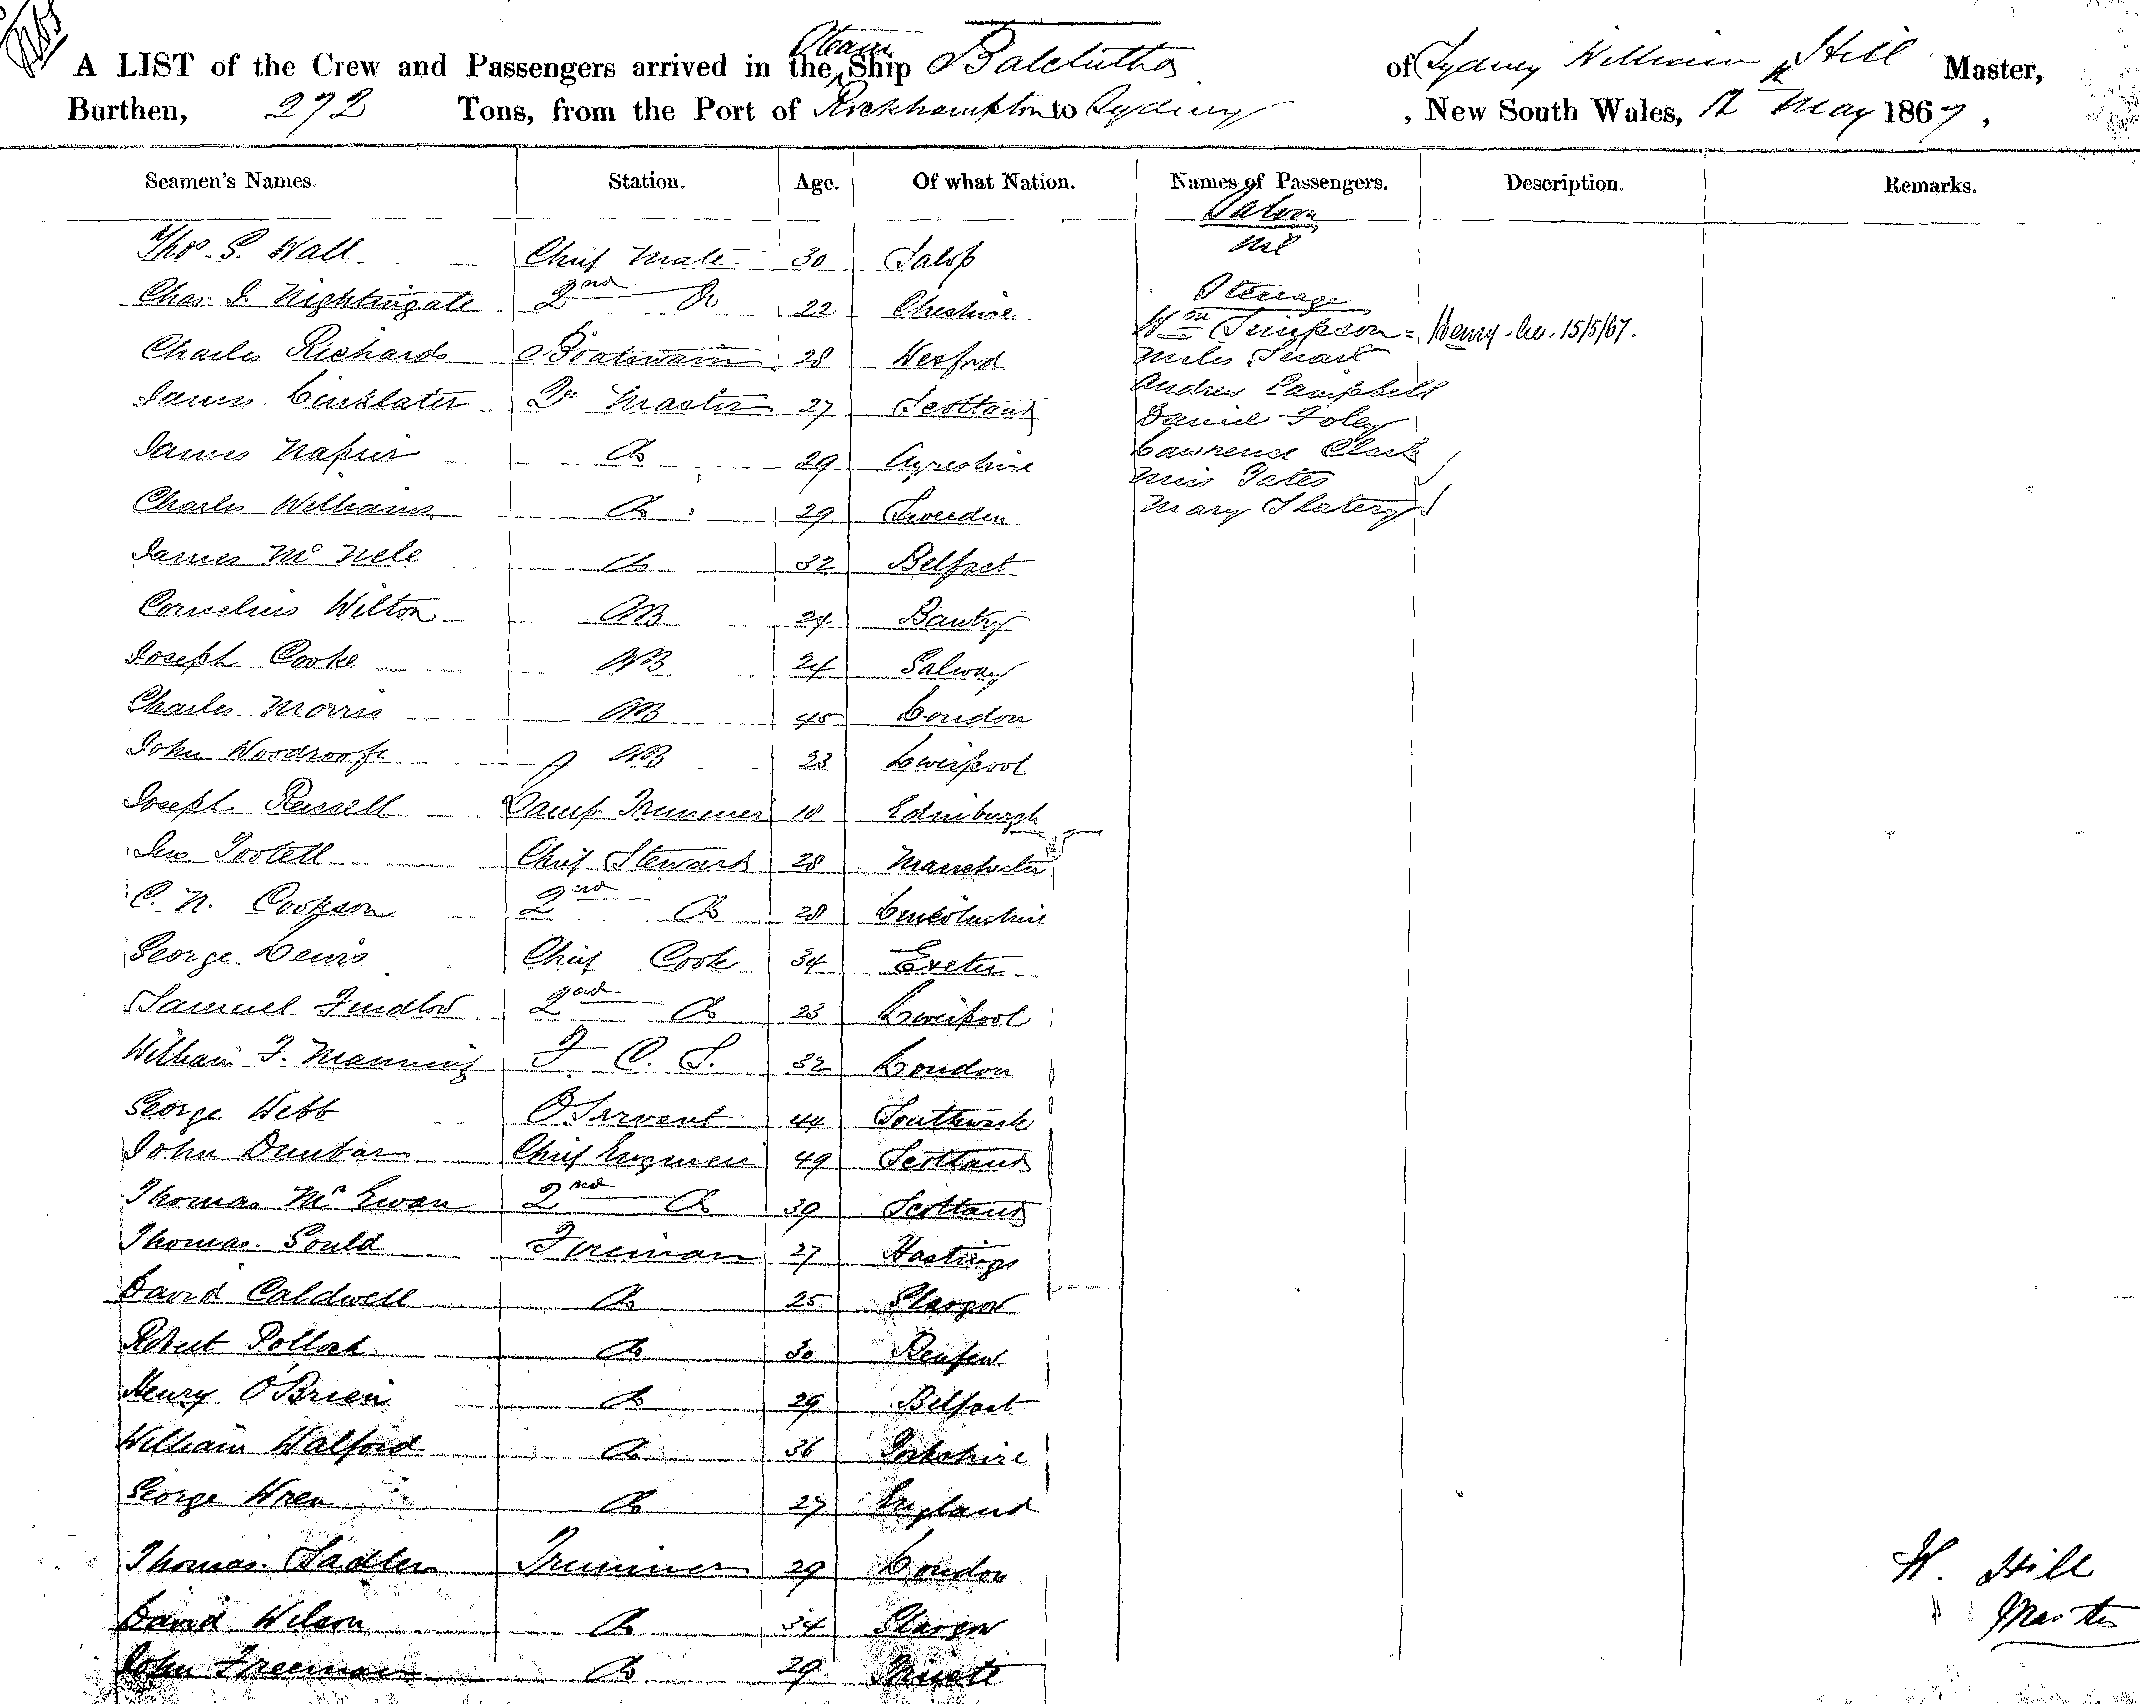 Steam
A LIST of the Crew and Passengers arrived in the Ship Balclutha of Sydney William Hill Master,
Burthen, 272 Tons, from the Port of Rockhampton to Sydney, New South Wales, 12 May 1867,
Seamen's Names. Station. Age. Of what Nation. Names of Passengers. Description. Remarks.
Saloon
Nil
Thos. S. Wall Chief Mate 30 Salop
Chas. I. Nightingale 2nd Do 22 Cheshire
Steerage
Wm Simpson = Henry 15/5/67.
Charles Richards Boatswain 28 Wexford
Miles
Andrew Campbell
James Linklater Qr Master 27 Scotland
Daniel Foley
James Napier Do 29 Ayreshire
Lawrence Clark
Miss Yates
Charles Williams Do 29 Sweeden
Mary Slatery
James Mc Nele Do 32 Belfast
Cornelius Wilton AB 24 Bantry
Joseph Cooke AB 24 Galway
Charles Morris AB 45 London
John Woodroofe AB 23 Liverpool
Joseph Russell Lamp Trimmer 18 Edinburgh
Jas Tootell Chief Steward 28 Manchester
C. N. Cookson 2nd Do 28 Lincolnshire
George Lewis Chief Cook 34 Exeter
Samuel Findlow 2nd Do 23 Liverpool
William F. Manning F. C. S. 32 London
George Webb O Servant 44 Southwark
John Dunbar Chief Engineer 49 Scotland
Thomas Mc Ewan 2nd Do 39 Scotland
Thomas Gould Fireman 27 Hastings
David Caldwell Do 25 Glasgow
Robert Pollock Do 30 Renfrew
Henry O'Brien Do 29 Belfast
William Walford Do 36 Yorkshire
George Wren Do 27 England
Thomas Sadler Trimmer 29 London
W. Hill
David Wilson Do 34 Glasgow
Master
John Freeman Do 29